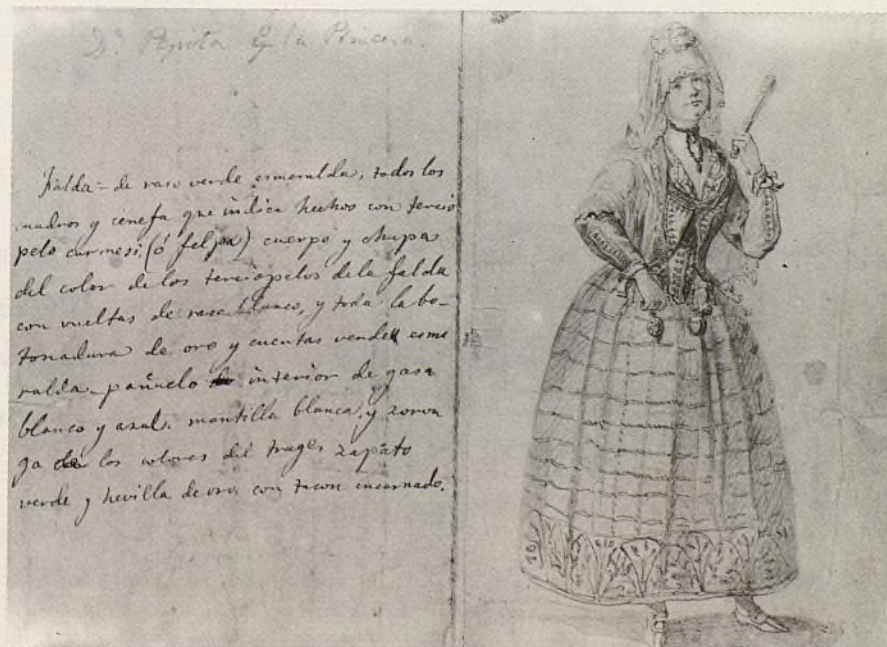 Dª Pepita
Falda = de raso verde esmeralda, todos los
cuadros y cenefa que indica hechos con tercio
pelo carmesi (ó felpa) cuerpo y chupa
del color de los terciopelos de la falda
con vueltas de raso blanco, y toda la bo-
tonadura de oro y cuentas verdes esme
ralda pañuelo interior de gasa
blanco y azul. mantilla blanca, y
los colores del trage, zapato
verde y hevilla de oro con tacon encarnado.